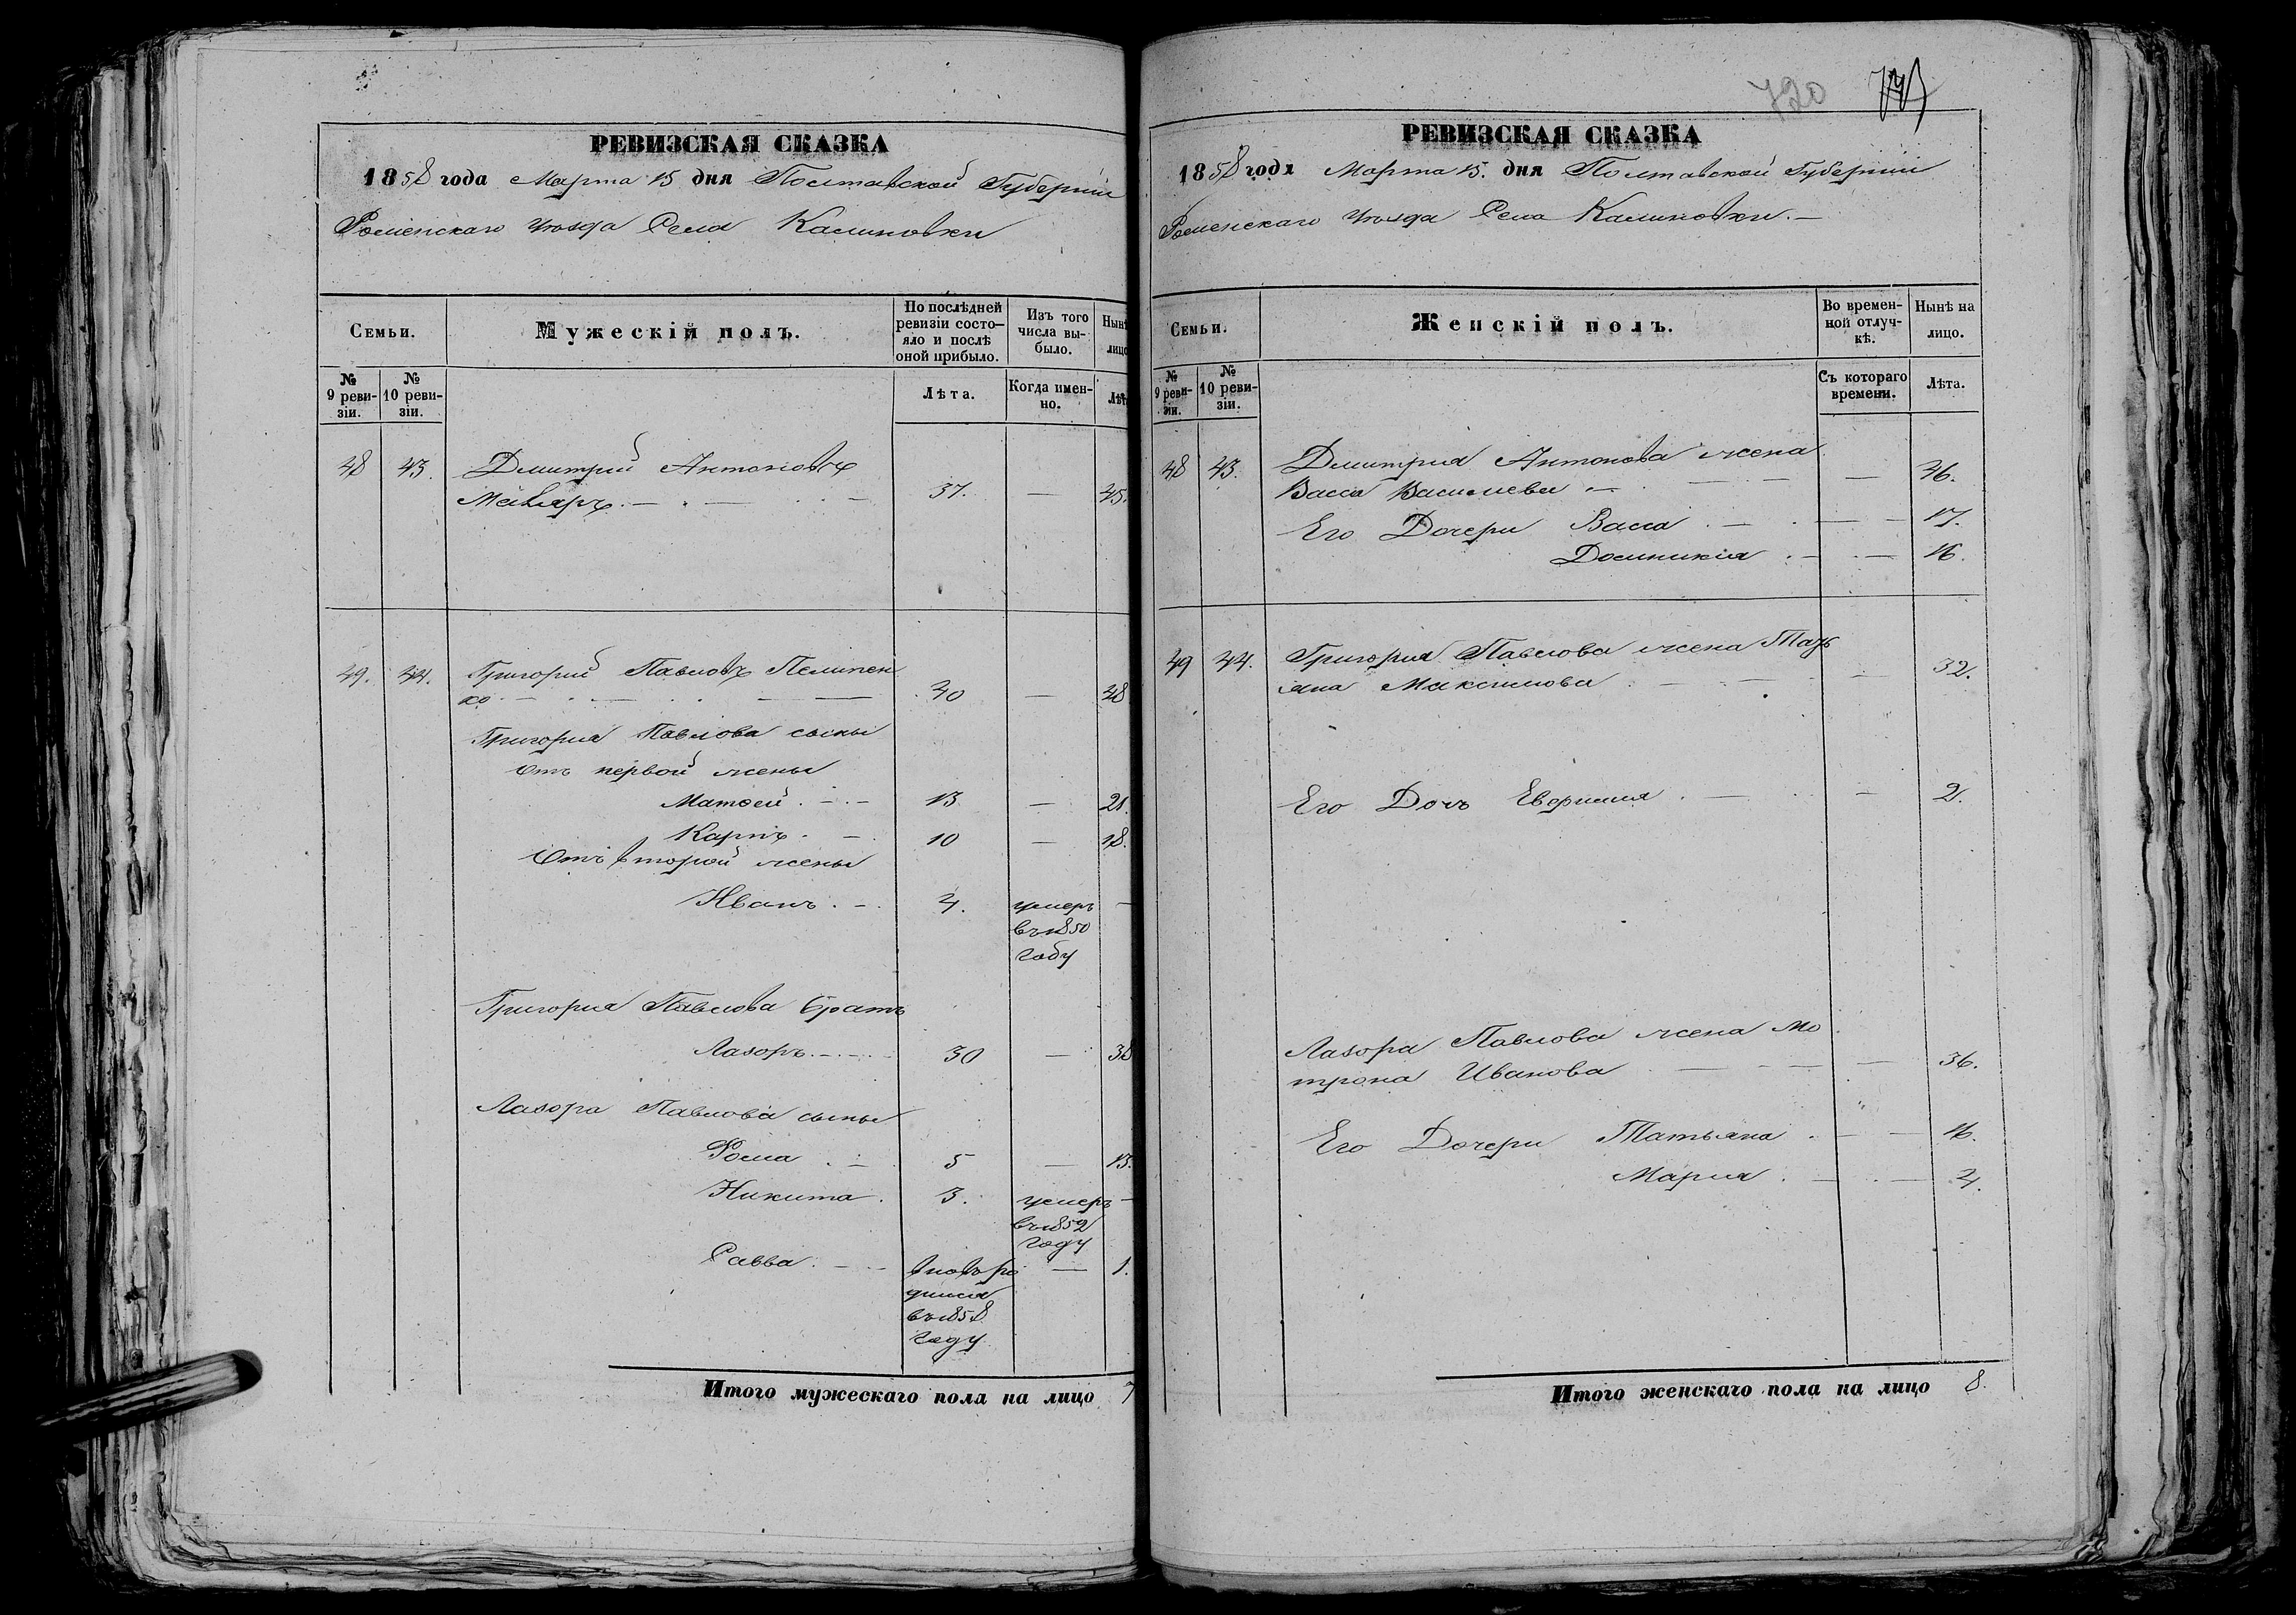 РЕВИЗСКАЯ СКАЗКА
1858 года Марта 15 дня Полтавской Губерніи
Роменскаго Уѣзда Села Калиновки
Семьи.
Мужескій полъ.
По послѣдней ревизіи состо-
яло и послѣ
оной прибыло.
Изъ того
числа вы-
было.
Нынѣ
лицо
№
9 реви-
зіи.
№
10 реви-
зіи.
Лѣта.
Когда имен-
но.
Лѣт
48 43. Дмитрий Антоновъ
37. — 45.
49. 44. Григорий Павловъ Пелипен
ко — 40 — 48
Григория Павлова сыны
Отъ первой жены
Матвей 13 — 21.
Карпъ 10 — 18.
Отъ второй жены
Иванъ 4. умеръ —
въ 1850
году
Григория Павлова братъ
Лазоръ 30 — 38
Лазора Павлова сыны
Фома 5 — 13.
Никита 3. умеръ —
въ 1852
году
Савва вновь ро — 1.
дился
въ 1858
году
Итого мужескаго пола на лицо 7
720
РЕВИЗСКАЯ СКАЗКА
1858 года Марта 15. дня Полтавской Губерніи
Роменскаго Уѣзда Села Калиновки.
Семьи.
Женскій полъ.
Во времен-
ной отлуч-
кѣ.
Нынѣ на
лицо.
№
9 реви-
зіи.
№
10 реви-
зіи.
Съ котораго
времени.
Лѣта.
48 43. Дмитрия Антонова жена
Васса Василиева — 46.
Его Дочери Васса — 17.
Домникія — 16.
49 44. Григория Павлова жена Тать
яна Максимова — 32.
Его Дочъ — 2.
Лазора Павлова жена Мо
трона Иванова — 36.
Его Дочери Татьяна — 16.
Мария — 4.
Итого женскаго пола на лицо 8.